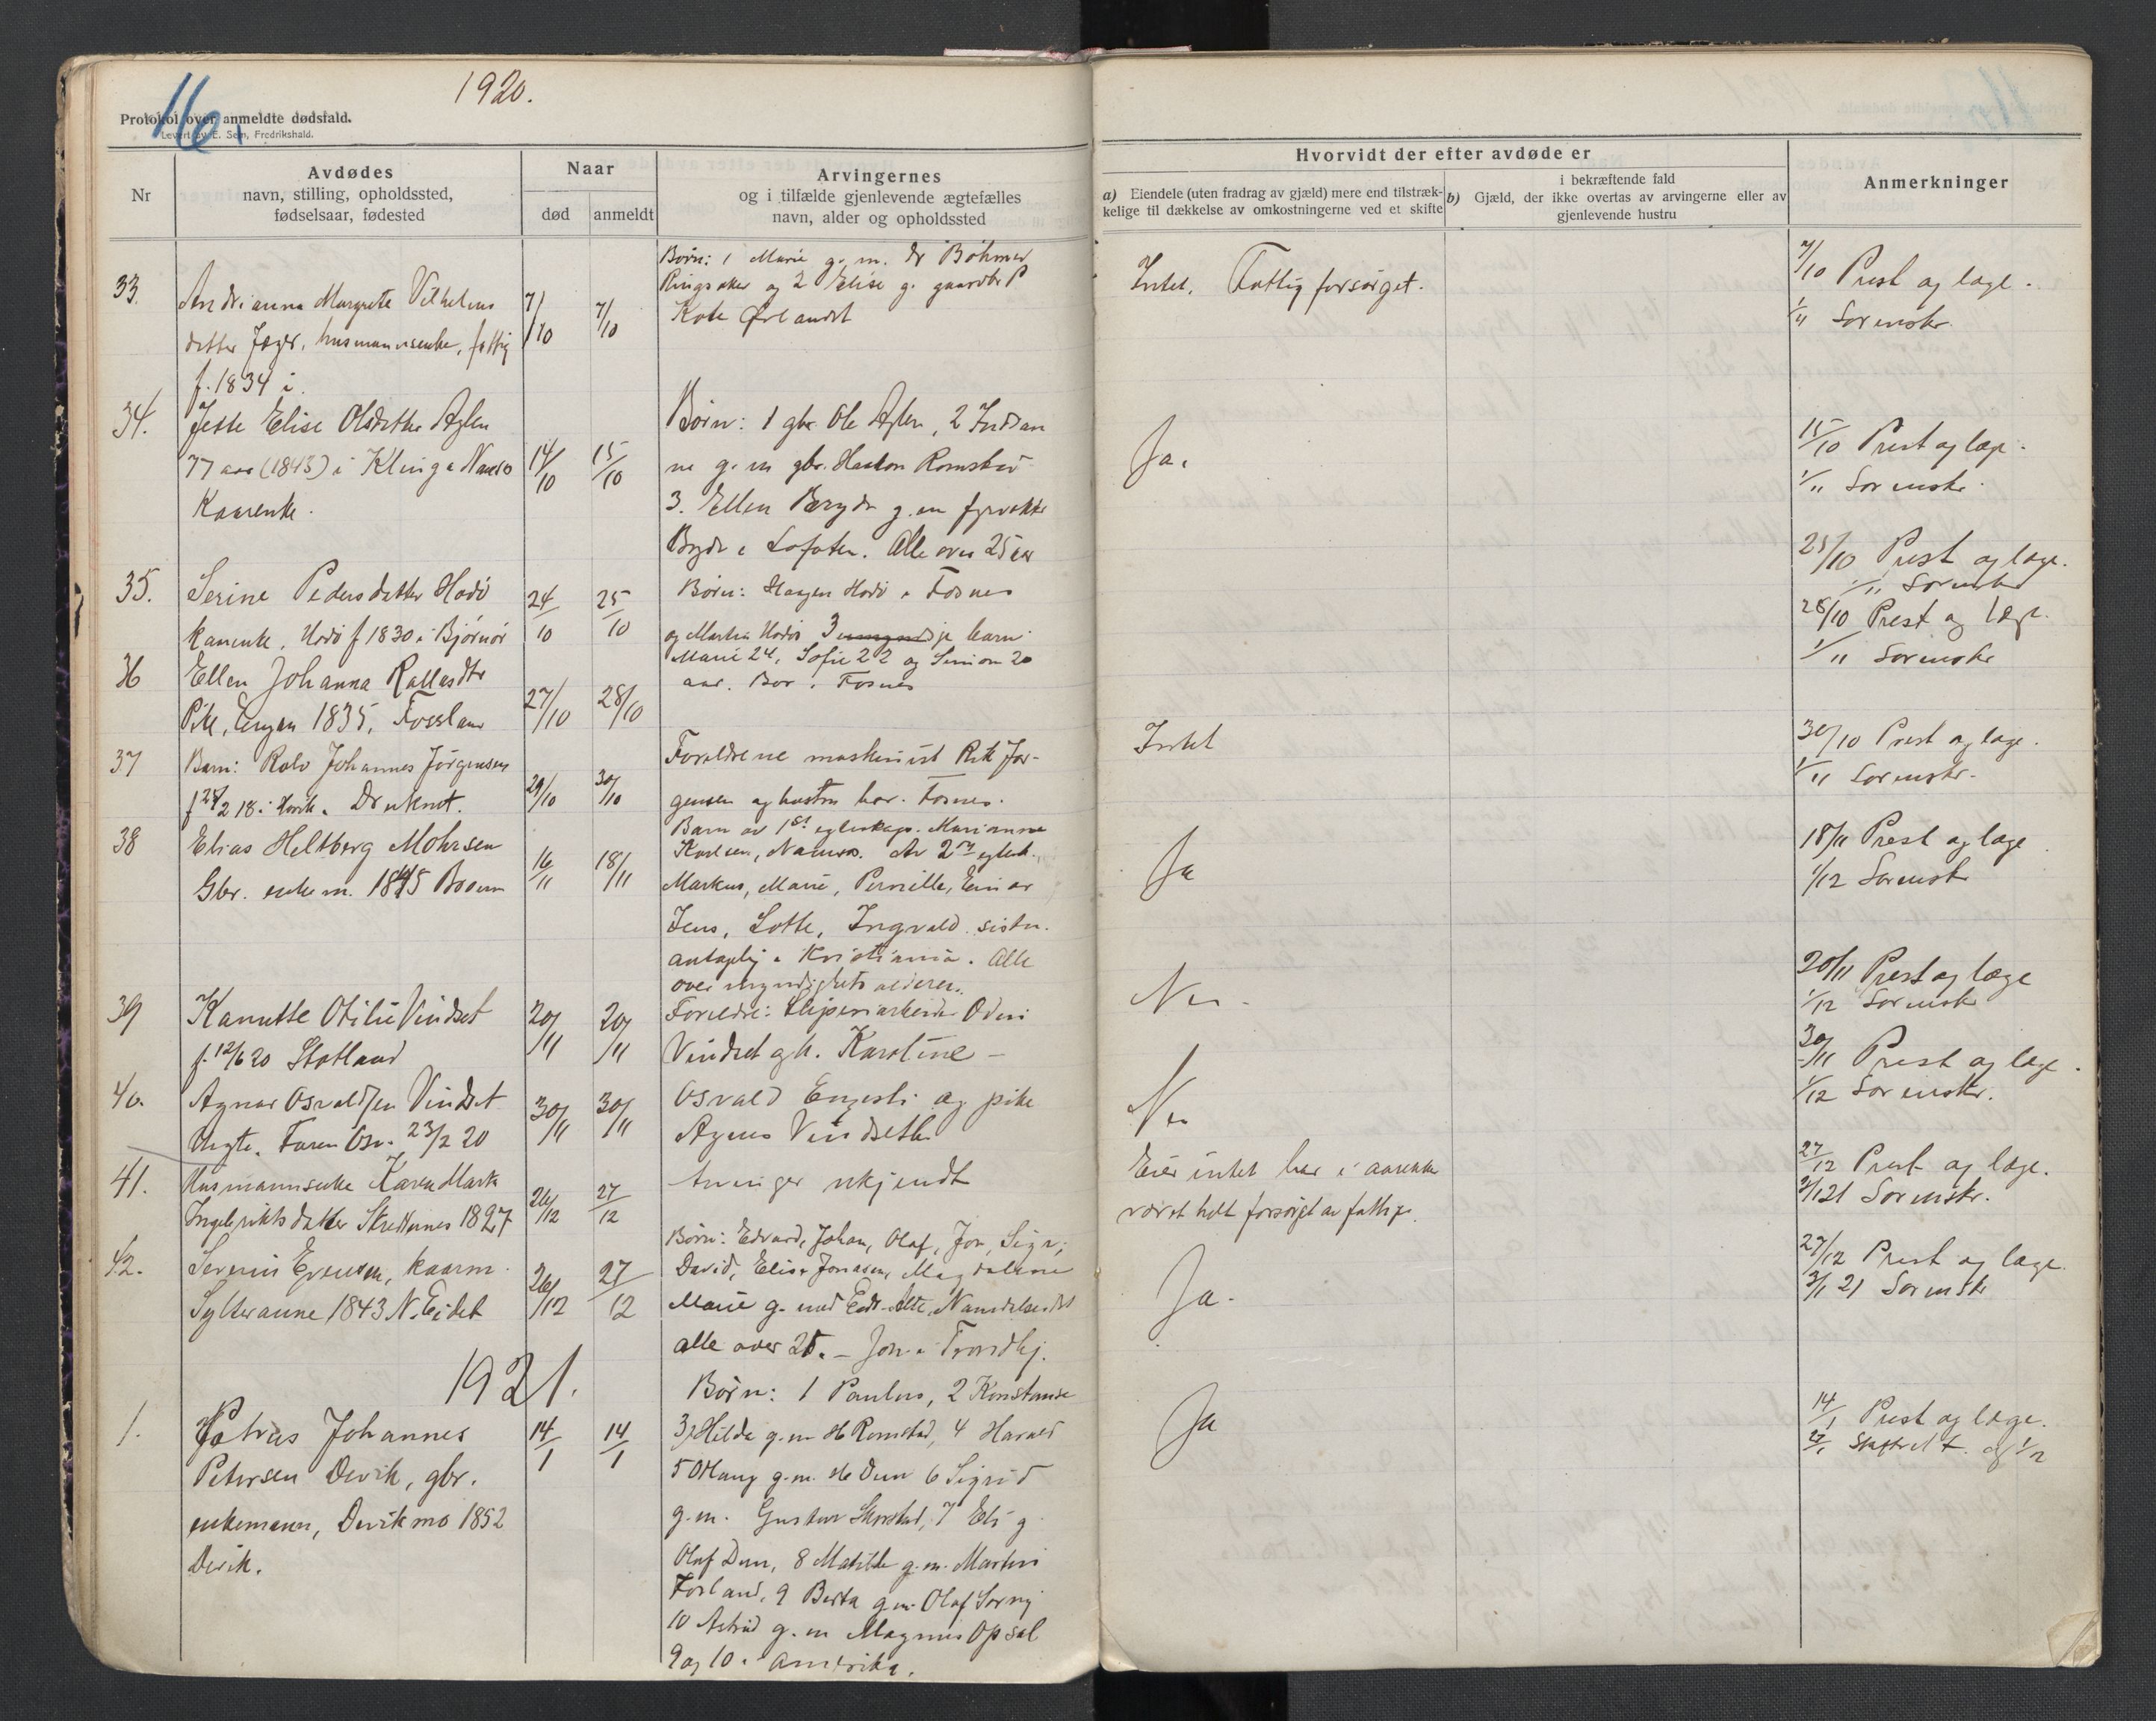 1920.
16.
Protokol over anmeldte dødsfald.
Levert av E. Sem, Fredrikshald.
Nr
Avdødes
navn, stilling, opholdssted,
fødselsaar, fødested
Naar
død
anmeldt
Arvingernes
og i tilfælde gjenlevende ægtefælles
navn, alder og opholdssted
Hvorvidt der efter avdøde er
a) Eiendele (uten fradrag av gjæld) mere end tilstræk-
kelige til dækkelse av omkostningerne ved et skifte
i bekræftende fald
b) Gjæld, der ikke overtas av arvingerne eller av
gjenlevende hustru
Anmerkninger
33.
Andrianna Margrete Vilhelms
datter Jæger, husmannsenke, fattig
f. 1834 i
7/10
7/10
Børn: 1 Marie g. m. Dr Bøhmer
Ringsaker og 2 Elise g. gaardbr P
Kote Ørlandet
Intet. Fattigforsørget.
7/10 Prest og læge.
1/11 Sorenskr.
34.
Jette Elise Olsdatter Aglen
77 aar (1843) i Klinga Namsos
Kaarenke.
14/10
15/10
Børn: 1 gbr Ole Aglen, 2 Indian
ne g. m gbr. Romstad
3. Ellen g. m fyrvokter
i Lofoten. Alle over 25 aar
Ja.
15/10 Prest og læge.
1/11 Sorenskr.
35.
Serine Pedersdatter Hodø
kaarenke, Hodø f 1830 i Bjørnør
24/10
25/10
Børn: Haagen Hodø i Fosnes
og Martin Hodøs 3 barn
Marie 24, Sofie 22 og Simon 20
aar. Bor i Fosnes
25/10 Prest og læge.
1/11 Sorenskr
36
Ellen Johanna Rallesdtr
Pike, 1835, Fossland
27/10
28/10
28/10 Prest og læge.
1/11 Sorenskr
37
Barn: Rolv Johannes Jørgensen
f 28/2 18. Druknet.
29/10
30/10
Forældrene maskinist Jør-
gensen og hustru Fosnes.
Intet
30/10 Prest og læge.
1/11 Sorenskr.
38
Elias Heltberg Mohrsen
Gbr. enkem. 1845
16/11
18/11
Barn av 1st egteskap. Marianne
Karlsen, Namsos. Av 2net egtesk.
Markus, Marie, Pernille, Einar
Jens, Lotte, Ingvald. sistn.
antagelig i Kristiania. Alle
over myndighetsalderen.
Ja
18/11 Prest og læge
1/12 Sorenskr
39
Kanutte Otilie Vindset
f. 12/6 20 Statland
20/11
20/11
Foreldre: Sliperiarbeider Odin
Vindset og h. Karoline –
Nei.
20/11 Prest og læge
1/12 Sorenskr
40.
Agnar Osvaldsen Vindset
Uegte. Faren Osv. 23/2 20
30/11
30/11
Osvald og pike
Agnes Vindseth
Nei
30/11 Prest og læge.
1/12 Sorenskr.
41.
Husmannsenke Karen Marta
Ingebriktsdatter 1827
26/12
27/12
Arvinger ukjendt
Eier intet har i aarrekke
været helt forsørget av fattigv.
27/12 Prest og læge.
3/1 21 Sorenskr.
42.
Severin Evensen, kaarm.
Sylteraune 1843 N. Eidet
26/12
27/12
Børn: Edvard, Johan, Olaf, Jon, Sign;
David, Elise Jonasen, Magdalene
Marie g. med Namdalseidet
alle over 25. – Jon i Trondhj.
Ja.
27/12 Prest og læge.
3/1 21 Sorenskr
1921.
1.
Petrus Johannes
Petersen Devik, gbr.
enkemann, Devikmo 1852
Devik.
14/1
14/1
Børn: 1 Paulus, 2 Konstanse
3 Hilda g. m H Romstad, 4 Harald
5 Otlaug g. m. Dun 6 Sigrid
g. m. Gustav 7 Eli g
Olaf Dun, 8 Matilde g. m. Martin
Forland, 9 Berta g. m Olaf
10 Astrid g. m Magnus Opsal
9 og 10 i Amerika.
Ja
14/1 Prest og læge.